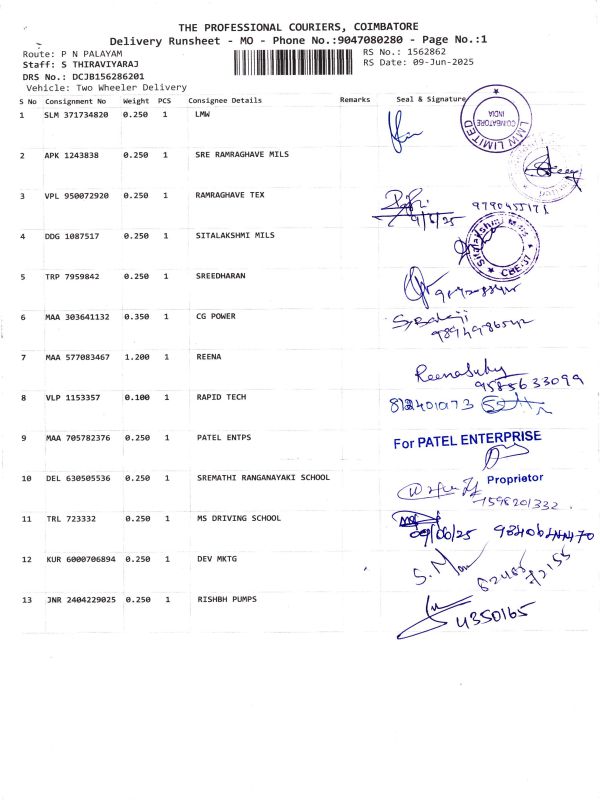 THE PROFESSIONAL COURIERS, COIMBATORE
Delivery Runsheet - MO - Phone No.:9047080280 - Page No.:1
Route: P N PALAYAM
RS No.: 1562862
Staff: S THIRAVIYARAJ
RS Date: 09-Jun-2025
DRS No.: DCJB156286201
Vehicle: Two Wheeler Delivery
S No Consignment No Weight PCS Consignee Details Remarks Seal & Signature
1 SLM 371734820 0.250 1 LMW
LMW LIMITED COIMBATORE INDIA
2 APK 1243838 0.250 1 SRE RAMRAGHAVE MILS
3 VPL 950072920 0.250 1 RAMRAGHAVE TEX
9/6/25
4 DDG 1087517 0.250 1 SITALAKSHMI MILS
Sitalakshmi Mills CBE-37
5 TRP 7959842 0.250 1 SREEDHARAN
6 MAA 303641132 0.350 1 CG POWER
S. Balaji
9894986542
7 MAA 577083467 1.200 1 REENA
9585633099
8 VLP 1153357 0.100 1 RAPID TECH
9 MAA 705782376 0.250 1 PATEL ENTPS
For PATEL ENTERPRISE
Proprietor
10 DEL 630505536 0.250 1 SREMATHI RANGANAYAKI SCHOOL
7598201332
11 TRL 723332 0.250 1 MS DRIVING SCHOOL
09/06/25
12 KUR 6000706894 0.250 1 DEV MKTG
13 JNR 2404229025 0.250 1 RISHBH PUMPS
4350165